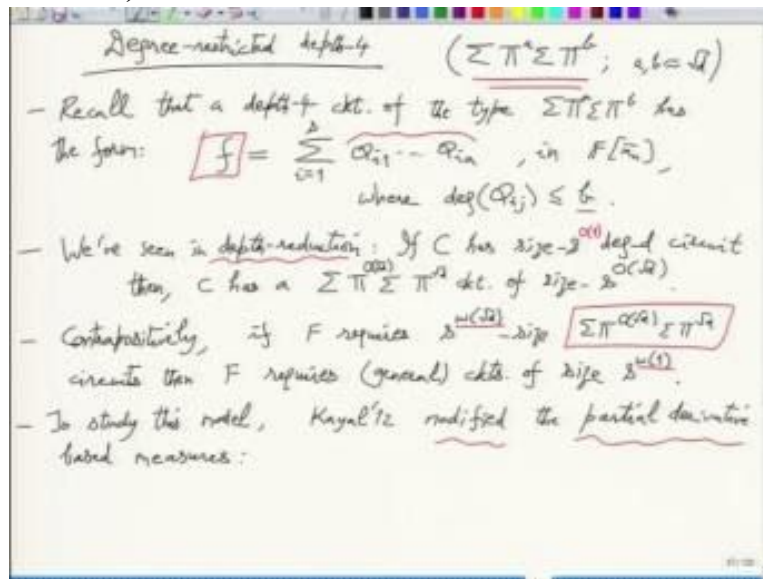 Degree-restricted depth-4 (ΣΠᵃΣΠᵇ; a,b≈√d)
- Recall that a depth-4 ckt. of the type ΣΠᵃΣΠᵇ has
the form: f = Σ_{i=1}^{s} Q_{i1} ⋯ Q_{ia}, in F[x̄_n],
where deg(Q_{ij}) ≤ b.
- We've seen in depth-reduction: If C has size-s^{O(1)} deg-d circuit
then, C has a ΣΠ^{O(√d)}ΣΠ^{√d} ckt. of size-s^{O(√d)}.
- Contrapositively, if F requires s^{ω(√d)}-size ΣΠ^{O(√d)}ΣΠ^{√d}
circuits then F requires (general) ckts. of size s^{ω(1)}.
- To study this model, Kayal'12 modified the partial derivative
based measures: